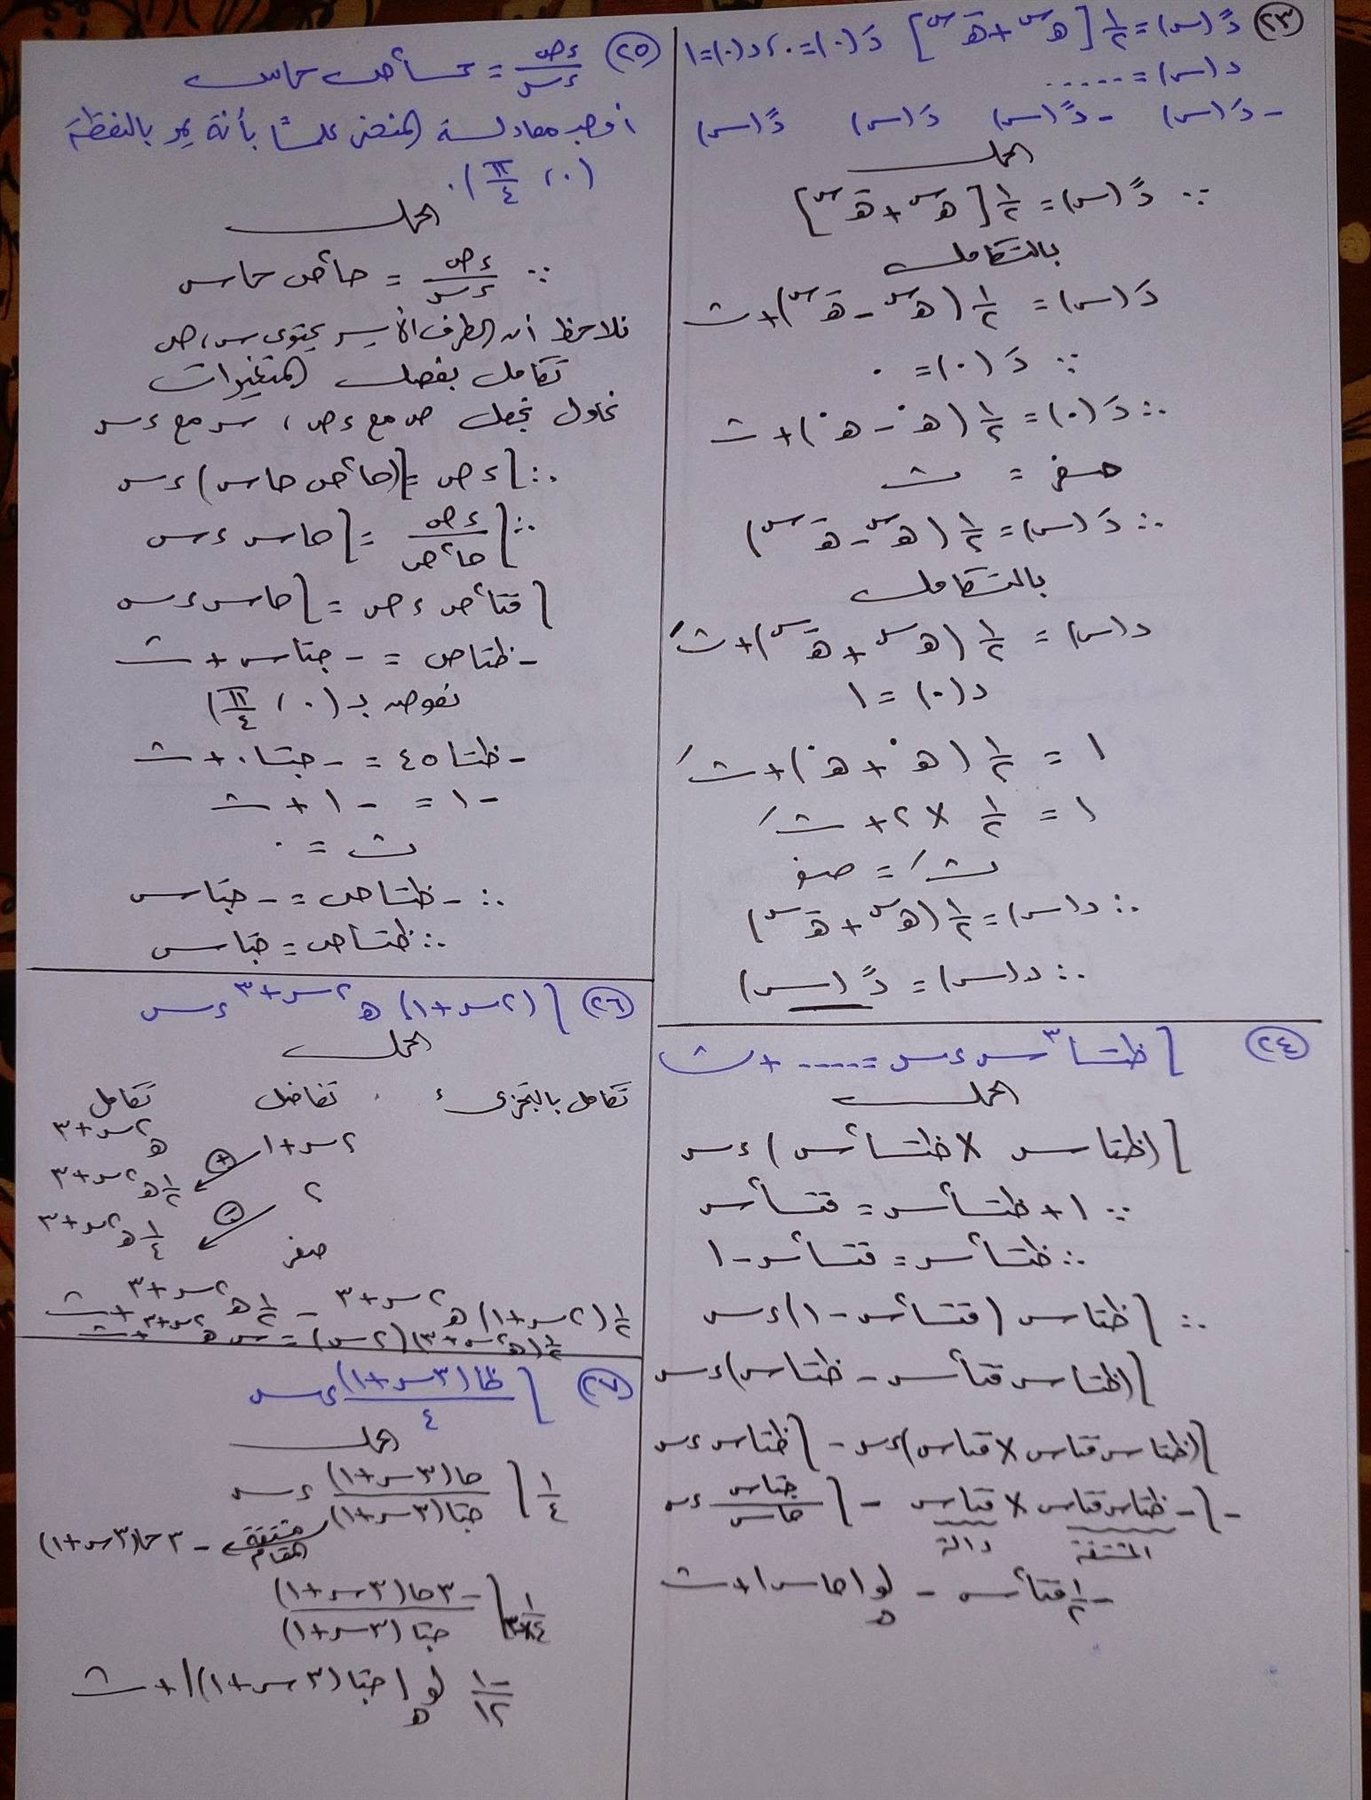 ٢٣ دً(س) = ١/٢ [هـ^س + هـ^-س] دَ(٠) = ٠ ، د(٠) = ١
د(س) = .....
- دَ(س) - دً(س) دَ(س) دً(س)
الحل
∵ دً(س) = ١/٢ [هـ^س + هـ^-س]
بالتكامل
دَ(س) = ١/٢ (هـ^س - هـ^-س) + ث
∵ دَ(٠) = ٠
∴ دَ(٠) = ١/٢ (هـ^٠ - هـ^٠) + ث
صفر = ث
∴ دَ(س) = ١/٢ (هـ^س - هـ^-س)
بالتكامل
د(س) = ١/٢ (هـ^س + هـ^-س) + ثَ
د(٠) = ١
١ = ١/٢ (هـ^٠ + هـ^٠) + ثَ
١ = ١/٢ × ٢ + ثَ
ثَ = صفر
∴ د(س) = ١/٢ (هـ^س + هـ^-س)
∴ د(س) = دً(س)
٢٤ ∫ ظتا^٣ س ءس = ..... + ث
الحل
∫ (ظتاس × ظتا^٢ س) ءس
∵ ١ + ظتا^٢ س = قتا^٢ س
∴ ظتا^٢ س = قتا^٢ س - ١
∴ ∫ ظتاس (قتا^٢ س - ١) ءس
∫ (ظتاس قتا^٢ س - ظتاس) ءس
∫ (ظتاس قتاس × قتاس) ءس - ∫ ظتاس ءس
- ∫ - ظتاس قتاس × قتاس - ∫ جتاس/حاس ءس
المشتقة دالة
- ١/٢ قتا^٢ س - لو_هـ |حاس| + ث
٢٥ ءص/ءس = حا^٢ ص حاس
أوجد معادلة المنحنى علماً بأنه يمر بالنقطة
(٠ ، π/٤) .
الحل
∵ ءص/ءس = حا^٢ ص حاس
نلاحظ أن الطرف الأيسر يحتوى س ، ص
تكامل بفصل المتغيرات
نحاول نجعل ص مع ءص ، س مع ءس
∴ ∫ ءص = ∫ (حا^٢ ص حاس) ءس
∴ ∫ ءص/حا^٢ ص = ∫ حاس ءس
∫ قتا^٢ ص ءص = ∫ حاس ءس
- ظتاص = - جتاس + ث
نعوض بـ (٠ ، π/٤)
- ظتا٤٥ = - جتا٠ + ث
- ١ = - ١ + ث
ث = ٠
∴ - ظتاص = - جتاس
∴ ظتاص = جتاس
٢٦ ∫ (٢س + ١) هـ^(٢س + ٣) ءس
الحل
تكامل بالتجزىء . تفاضل تكامل
٢س + ١ هـ^(٢س + ٣)
٢ (+) ١/٢ هـ^(٢س + ٣)
صفر (-) ١/٤ هـ^(٢س + ٣)
١/٢ (٢س + ١) هـ^(٢س + ٣) - ١/٢ هـ^(٢س + ٣) + ث
١/٢ (هـ^(٢س + ٣)) (٢س) = س هـ^(٢س + ٣) + ث
٢٧ ∫ ظا(٣س + ١)/٤ ءس
الحل
١/٤ ∫ حا(٣س + ١)/جتا(٣س + ١) ءس
مشتقة المقام - ٣حا(٣س + ١)
- ١/(٤×٣) ∫ - ٣حا(٣س + ١)/جتا(٣س + ١)
- ١/١٢ لو_هـ |جتا(٣س + ١)| + ث